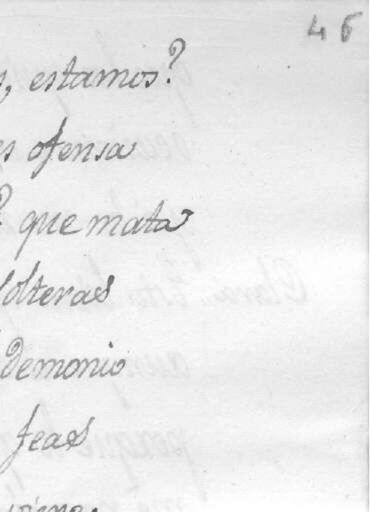 46
s, estamos?
es ofensa
? que mata
solteras
demonio
feas
viene.